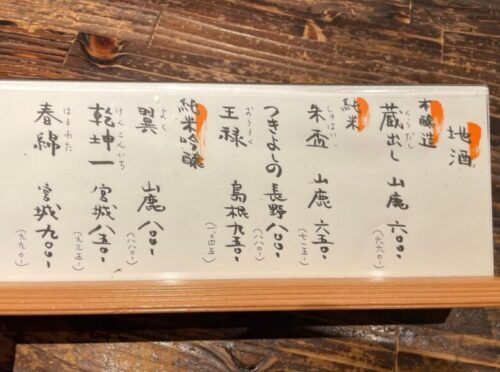 地酒
本醸造
くらだし
蔵出し 山鹿 六〇〇-
(六六〇-)
純米
しゅはい
朱盃 山鹿 六五〇-
(七一五-)
つきよしの 長野 八〇〇-
(八八〇-)
おうろく
王禄 島根 九五〇-
(一〇四五)
純米吟醸
よく
翼 山鹿 八〇〇-
(八八〇-)
けんこんいち
乾坤一 宮城 八五〇-
(九三五-)
はるわた
春綿 宮城 九〇〇-
(九九〇-)